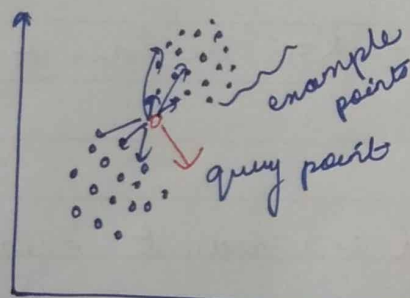 example
points
query point